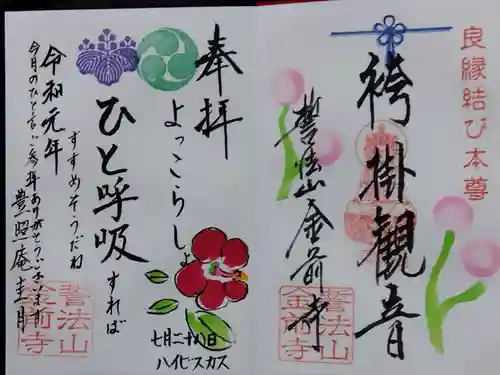 良縁結び本尊
袴掛観音
誓法山金前寺
誓法山
金前寺
奉拝
よっこらしょ
ひと呼吸すれば
すすめそうだね
令和元年
今月のひと言いご参拝ありがとうございます
豊照庵圭月
七月二十八日
ハイビスカス
誓法山
金前寺